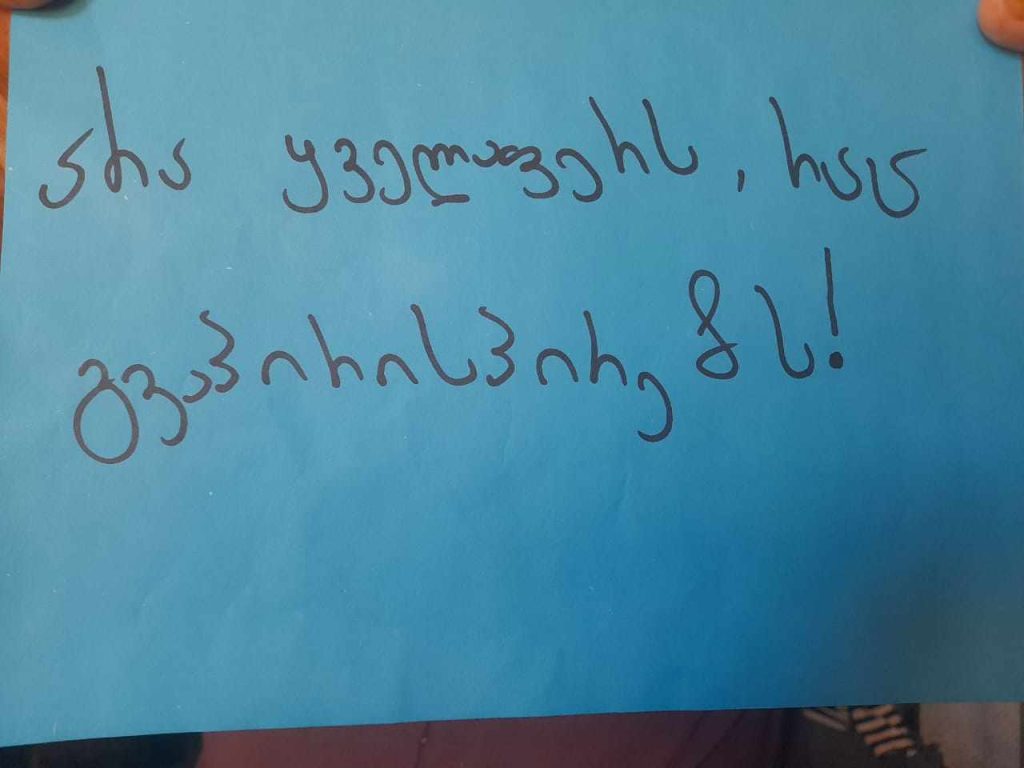 არა ყველაფერს, რაც
გვაპირისპირებს!